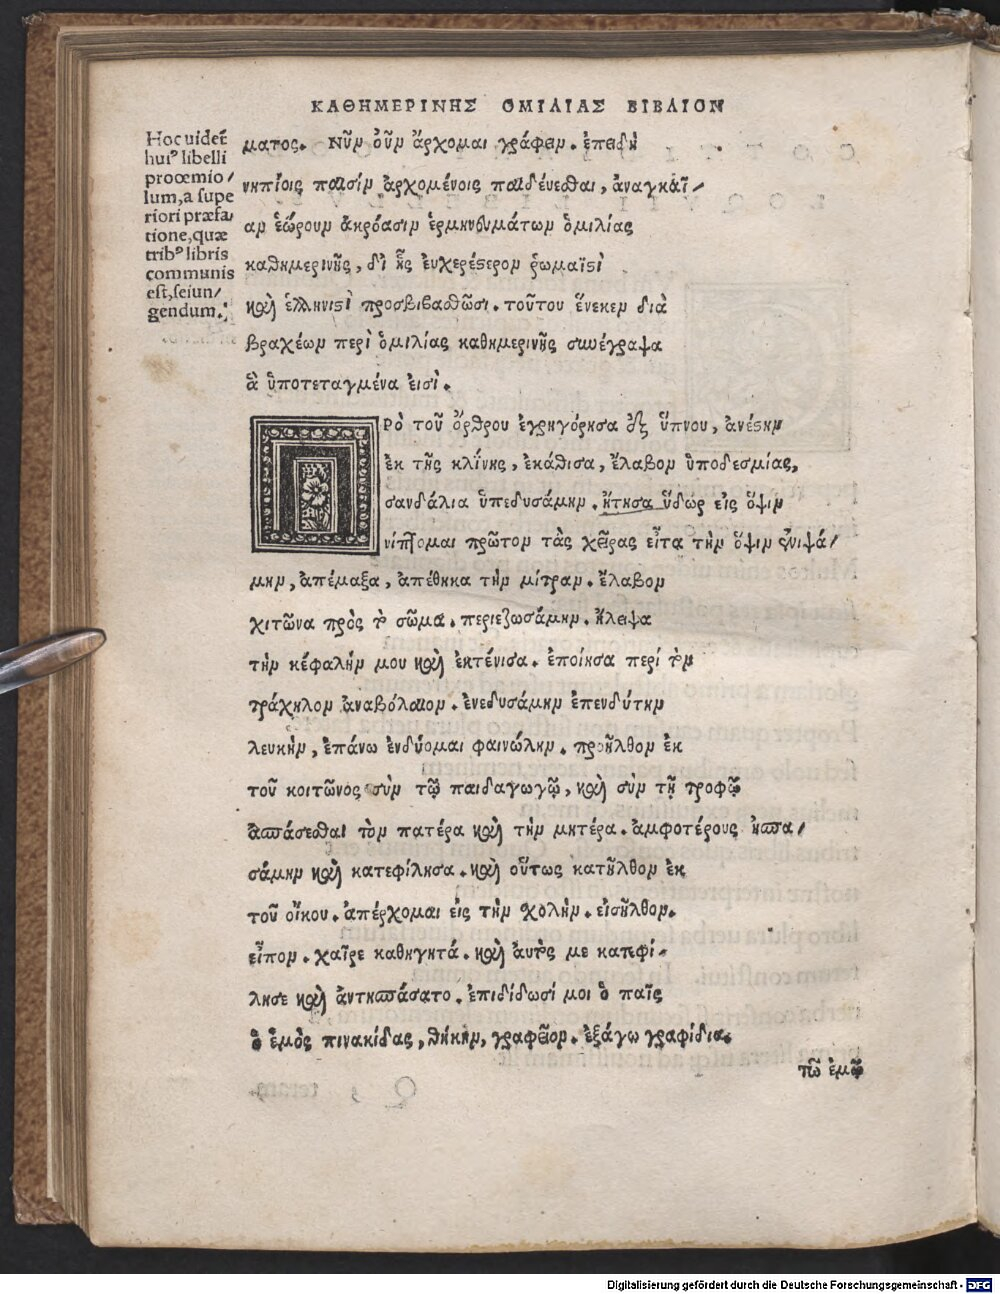 ΚΑΘΗΜΕΡΙΝΗΣ ΟΜΙΛΙΑΣ ΒΙΒΛΙΟΝ
Hoc uidet̃
huiꝰ libelli
prooemio/
lum, a supe
riori præfa/
tione, quæ
tribꝰ libris
communis
est, seiun/
gendum.
ματος. Νῦν οὖν ἄρχομαι γράφειν. ἐπειδὴ
νηπίοις παισὶν ἀρχομένοις παιδέυεσθαι, ἀναγκαῖ/
αν ἑώρουν ἀκρόασιν ἑρμηνευμάτων ὁμιλίας
καθημερινῆς, δι ἧς ἐυχερέστερον ῥωμαϊστὶ
καὶ ἑλληνιστὶ προσβιβαθῶσι. τούτου ἕνεκεν διὰ
βραχέων περὶ ὁμιλίας καθημερινῆς συνέγραψα
ἃ ὑποτεταγμένα ἐισὶ.
ΠΡὸ τοῦ ὄρθρου ἐγρηγόρησα ἐξ ὕπνου, ἀνέστην
ἐκ τῆς κλίνης, ἐκάθισα, ἔλαβον ὑποδεσμίας,
σανδάλια ὑπεδυσάμην. ἤτησα ὕδωρ εἰς ὄψιν
νίπτομαι πρῶτον τὰς χεῖρας εἶτα τὴν ὄψιν ἐνιψά/
μην, ἀπέμαξα, ἀπέθηκα τὴν μίτραν. ἔλαβον
χιτῶνα πρὸς τὸ σῶμα. περιεζωσάμην. ἤλειψα
τὴν κέφαλήν μου καὶ ἐκτένισα. ἐποίησα περὶ τὸν
τράχηλον ἀναβόλαιον. ἐνεδυσάμην ἐπενδύτην
λευκὴν, ἐπάνω ἐνδύομαι φαινώλην. προῆλθον ἐκ
τοῦ κοιτῶνος σὺν τῷ παιδαγωγῷ, καὶ σὺν τῇ τροφῷ
ἀσπάσεσθαι τὸν πατέρα καὶ τὴν μητέρα. ἀμφοτέρους ἠσπα/
σάμην καὶ κατεφίλησα. καὶ οὕτως κατῆλθον ἐκ
τοῦ οἴκου. ἀπέρχομαι εἰς τὴν σχολήν. εἰσῆλθον.
εἶπον. χαῖρε καθηγητά. καὶ ἀυτός με κατεφί-
λησε καὶ ἀντησπάσατο. ἐπιδίδωσί μοι ὁ παῖς
ὁ ἐμὸς πινακίδας, θήκην, γραφεῖον. ἐξάγω γραφίδια.
τῷ ἐμῷ
Digitalisierung gefördert durch die Deutsche Forschungsgemeinschaft - DFG